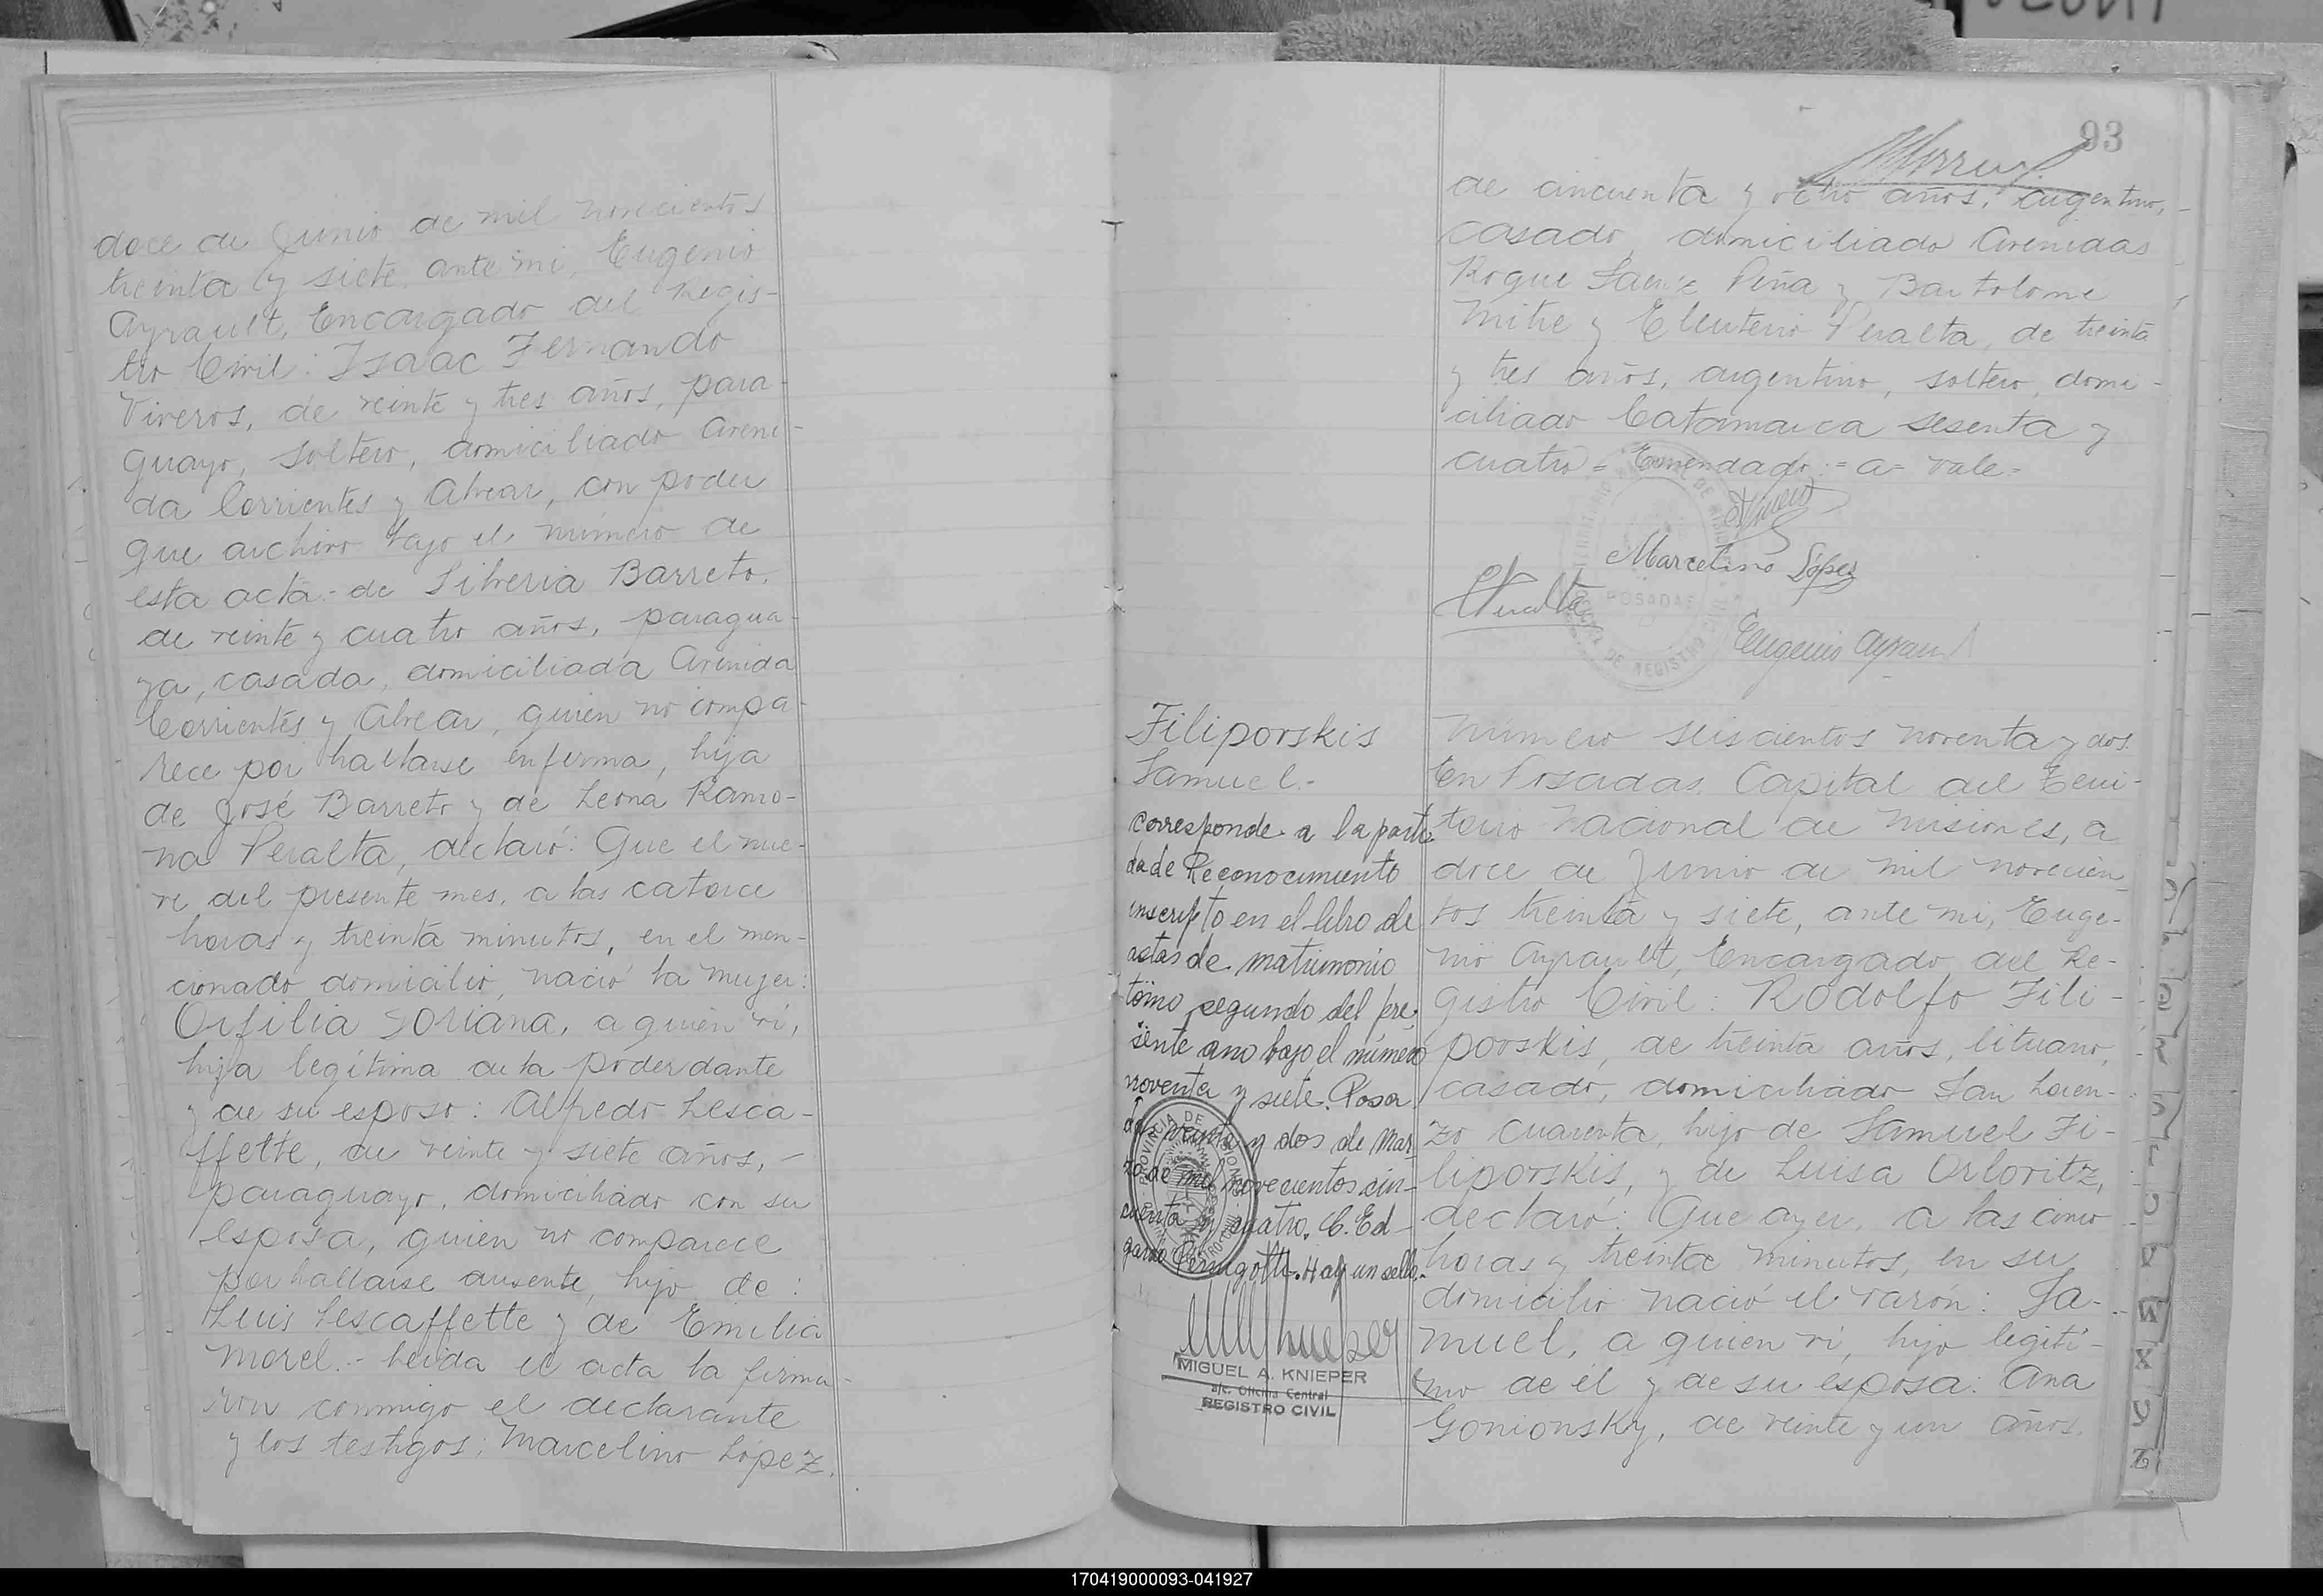 doce de Junio de mil novecientos
treinta y siete, ante mi, Eugenio
Ayrault, Encargado del Regis-
tro Civil: Isaac Fernando
Viveros, de veinte y tres años, para-
guayo, soltero, domiciliado Aveni-
da Corrientes y Alvear, con poder
que archivo bajo el número de
esta acta - de Silveria Barreto,
de veinte y cuatro años, paragua-
ya, casada, domiciliada Avenida
Corrientes y Alvear, quien no compa-
rece por hallarse enferma, hija
de José Barreto y de Leona Ramo-
na Peralta, declaró: Que el nue-
ve del presente mes, a las catorce
horas y treinta minutos, en el men-
cionado domicilio, nació la mujer:
Orfilia Soriana, a quien vi,
hija legítima de la poderdante
y de su esposo: Alfredo Lesca-
ffette, de veinte y siete años, -
paraguayo, domiciliado con su
esposa, quien no comparece
por hallarse ausente, hijo de:
Luis Lescaffette y de Emilia
Morel.- Leida el acta la firma-
ron conmigo el declarante
y los testigos; Marcelino López,
93
de cincuenta y ocho años, argentino,
casado, domiciliado Avenidas
Roque Saenz Peña y Bartolome
Mitre y Eleuterio Peralta, de treinta
y tres años, argentino, soltero, domi-
ciliado Catamarca sesenta y
cuatro = Enmendado: = a = Vale =
Marcelino López
POSADAS
DE REGISTRO CIVIL
Eugenio Ayrault
Filiporskis
Samuel.-
corresponde a la parti
da de Reconocimiento
inscripto en el libro de
actas de matrimonio
tomo segundo del pre-
sente ano bajo el número
noventa y siete. Posa-
das veinte y dos de Mar-
zo de mil novecientos cin-
cuenta y cuatro. C. Ed-
gardo Perugotti. Hay un sello.
PROVINCIA DE MISIONES
MIGUEL A. KNIEPER
a/c. Oficina Central
REGISTRO CIVIL
Número seiscientos noventa y dos.
En Posadas, Capital del Terri-
torio Nacional de Misiones, a
doce de Junio de mil novecien-
tos treinta y siete, ante mi, Euge-
nio Ayrault, Encargado del Re-
gistro Civil: Rodolfo Fili-
povskis, de treinta años, lituano,
casado, domiciliado San Loren-
zo cuarenta, hijo de Samuel Fi-
liporskis, y de Luisa Orloritz,
declaró: Que ayer, a las cinco
horas y treinta minutos, en su
domicilio nació el varón: Sa-
muel, a quien vi, hijo legíti-
mo de él y de su esposa: Ana
Gonionsky, de veinte y un años,
170419000093-041927